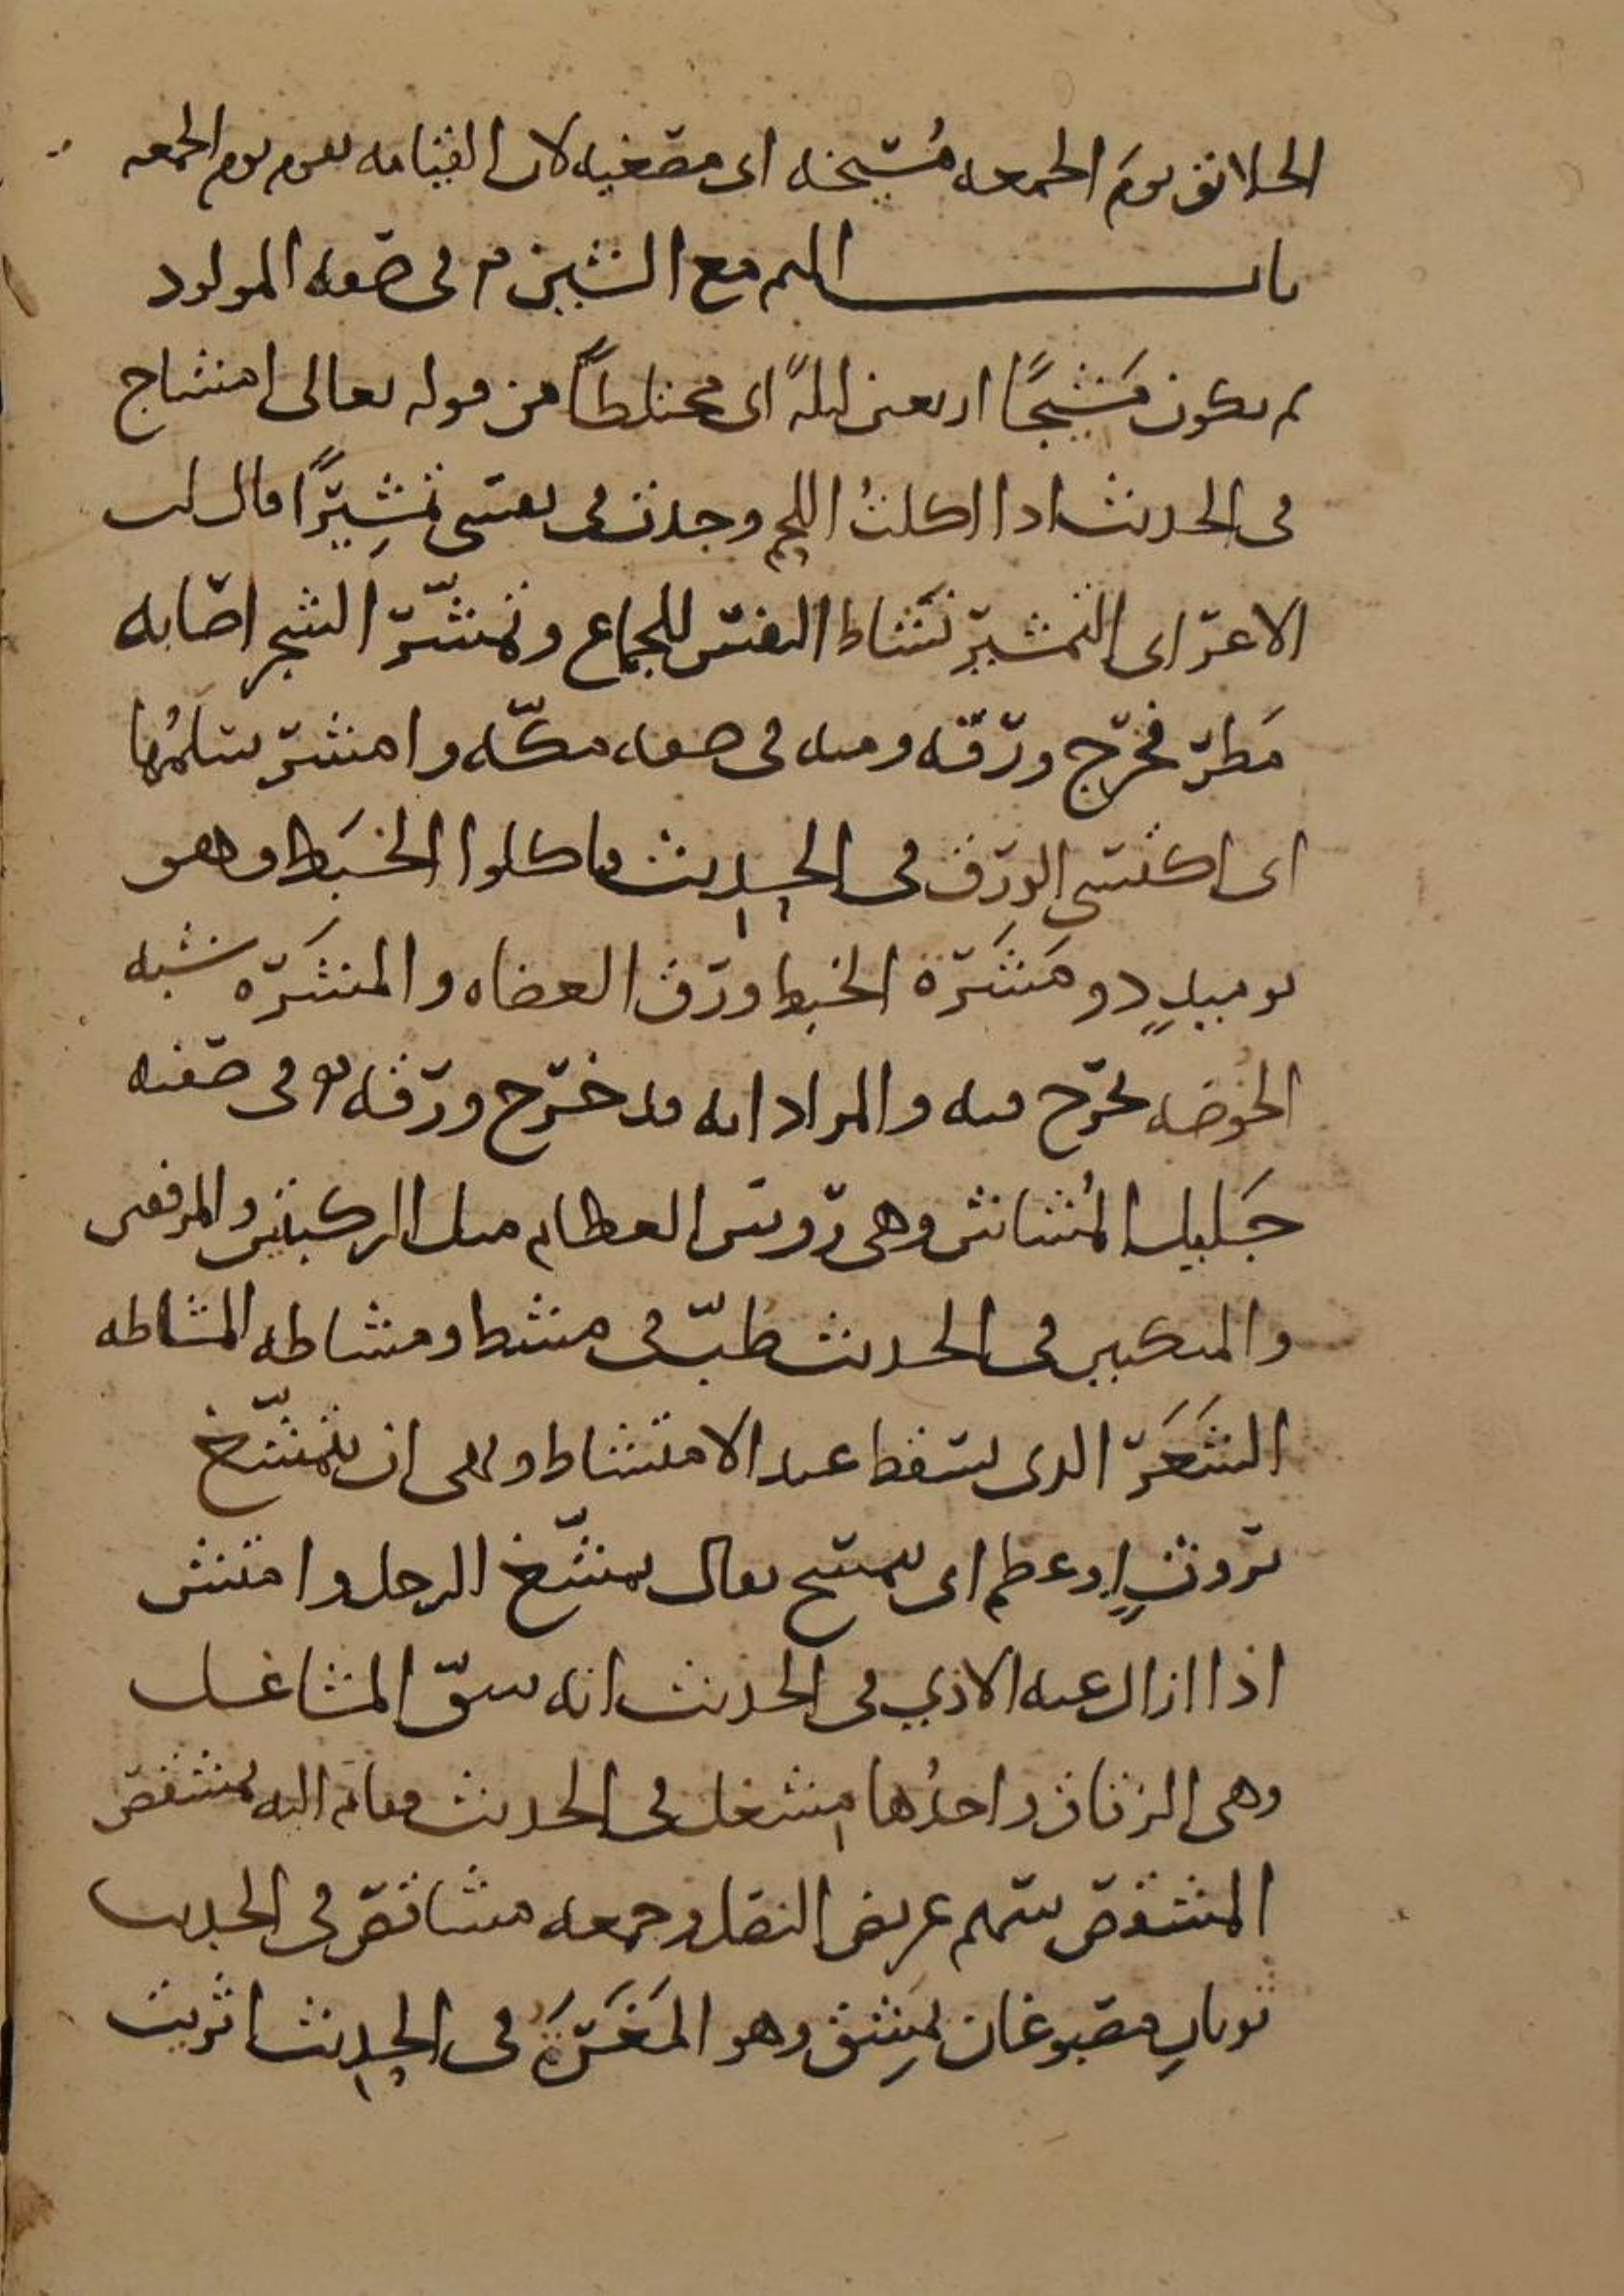 الخلائق يومَ الجمعه مُسيخه اى مصغيه لان القيامه تقوم يوم الجمعه
باب الميم مع الشين م فى صفه المولود
ثم يكون مَشيجًا اربعين ليلةً اى مختلطاً من قوله تعالى امشاج
فى الحديث اذا اكلتُ اللحم وجدت فى نفسى تمشِيرًا قال ابن
الاعرابى التمشير نشاط النفس للجماع وتمشّر الشجر اصابه
مَطر فخرج ورقه ومنه فى صفه مكّه وامشر سلمُها
اى اكتسى الورق فى الحديث فاكلوا الخبَط وهو
يوميذٍ ذو مَشَرة الخبط ورق العضاه والمشَره شبه
الخُوصه تخرج فيه والمراد انه قد خرج ورقه م فى صفته
جَليل المُشاش وهى روس العظام مثل الركبتين والمرفقين
والمنكبين فى الحديث طبّ فى مشط ومشاطه المشاطه
الشَعَر الذى يسقط عند الامتشاط ونهى ان يتمشّع
بروثٍ او عظم اى يتمسح يقال تمشّع الرجل وامتش
اذا ازال عنه الاذي فى الحديث انه شقّ المشاعل
وهى الزقاق واحدُها مشعل فى الحديث فقام اليه بمشقص
المشقص سهم عريض النصل وجمعه مشاقص فى الحديث
ثوبانِ مصبوغان بمِشق وهو المَغَرَة فى الحديث اثريت